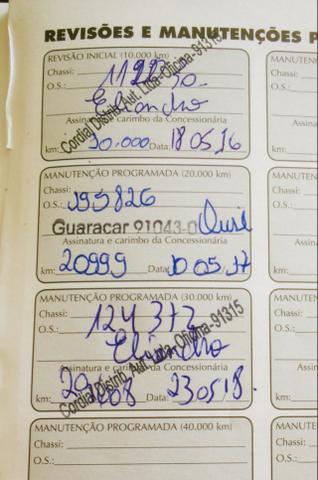 REVISÕES E MANUTENÇÕES P
REVISÃO INICIAL (10.000 km)
Chassi:
O.S.:
Cordial Distrib. Aut. Ltda-Oficina-91315
Assinatura e carimbo da Concessionária
km: 10.000 Data: 18 05 16
MANUTENÇÃO PROGRAMADA (20.000 km)
Chassi:
O.S.: 195826
Guaracar 91043-0
Assinatura e carimbo da Concessionária
km: 20999 Data: 10 05 17
MANUTENÇÃO PROGRAMADA (30.000 km)
Chassi:
124 372
O.S.:
Cordial Distrib. Aut. Ltda-Oficina-91315
Assinatura e carimbo da Concessionária
km: Data: 23 05 18.
MANUTENÇÃO PROGRAMADA (40.000 km)
Chassi:
O.S.:
MANUTEN
Chassi:
O.S.:
Assin
km:
MANUTEN
Chassi:
O.S.:
Assin
km:
MANUTEN
Chassi:
O.S.:
Assin
km:
MANUTEN
Chassi:
O.S.: